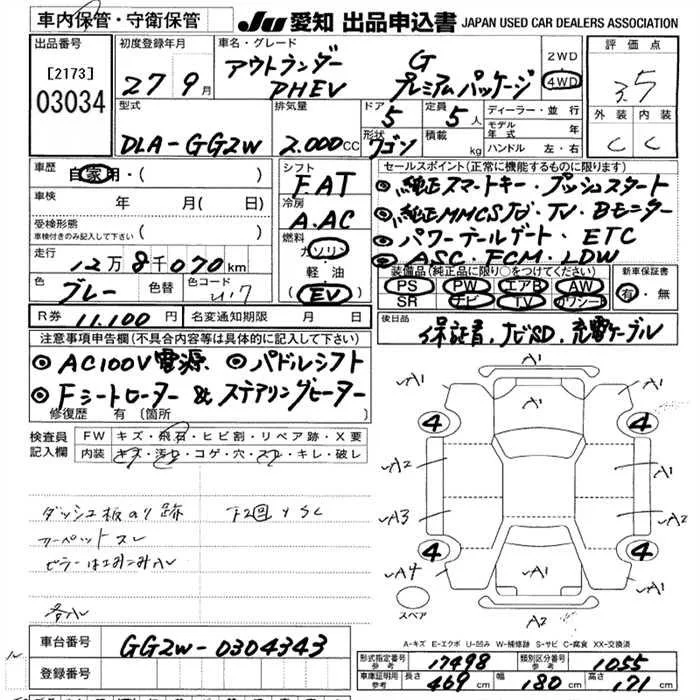 車内保管・守衛保管
JU 愛知 出品申込書 JAPAN USED CAR DEALERS ASSOCIATION
出品番号
[2173]
03034
初度登録年月
27 9月
車名・グレード
アウトランダー G
PHEV プレミアムパッケージ
2WD
4WD
評価点
3.5
外装 内装
C C
型式
DLA-GG2W
排気量
2.000cc
ドア
5
形状
ワゴン
定員
5人
積載
kg
ディーラー・並行
モデル年式 年
ハンドル 左・右
車歴 自家用・( )
車検 年 月( 日)
受検形態
車検付きのみ記入して下さい ( )
走行 12万8千070km
色 グレー 色替 色コード
シフト
FAT
冷房
A.AC
燃料
ガソリン
軽・油
(EV)
セールスポイント(正常に機能するものに限ります)
◎純正スマートキー・プッシュスタート
◎純正MMCSナビ・TV・Bモニター
◎パワーテールゲート・ETC
◎ASC・FCM・LDW
装備品(純正品に限り○をつけてください)
PS PW エアB AW
SR ナビ TV カワシート
新車保証書
有・無
R券 11,100円 名変通知期限 月 日
後日品
保証書、ナビSD、充電ケーブル
注意事項申告欄(不具合内容等は具体的に記入して下さい)
◎AC100V電源 ◎パドルシフト
◎Fシートヒーター & ステアリングヒーター
修復歴 有 〔箇所 〕
検査員記入欄
FW キズ・飛石・ヒビ割・リペア跡・X要
内装 キズ・汚れ・コゲ・穴・スレ・キレ・破レ
ダッシュ板のり跡
カーペットスレ
A1
A1
A1
A1
4
4
A2
A1
A2
A3
A1
4
4
A4
A1
A1
A2
スペア
A-キズ E-エクボ U-凹み W-補修跡 S-サビ C-腐食 XX-交換済
車台番号 GG2W-0304343
登録番号
形式指定番号参考 17498 類別区分番号参考 1055
車庫証明用参考 長さ 469cm 幅 180cm 高さ 171cm